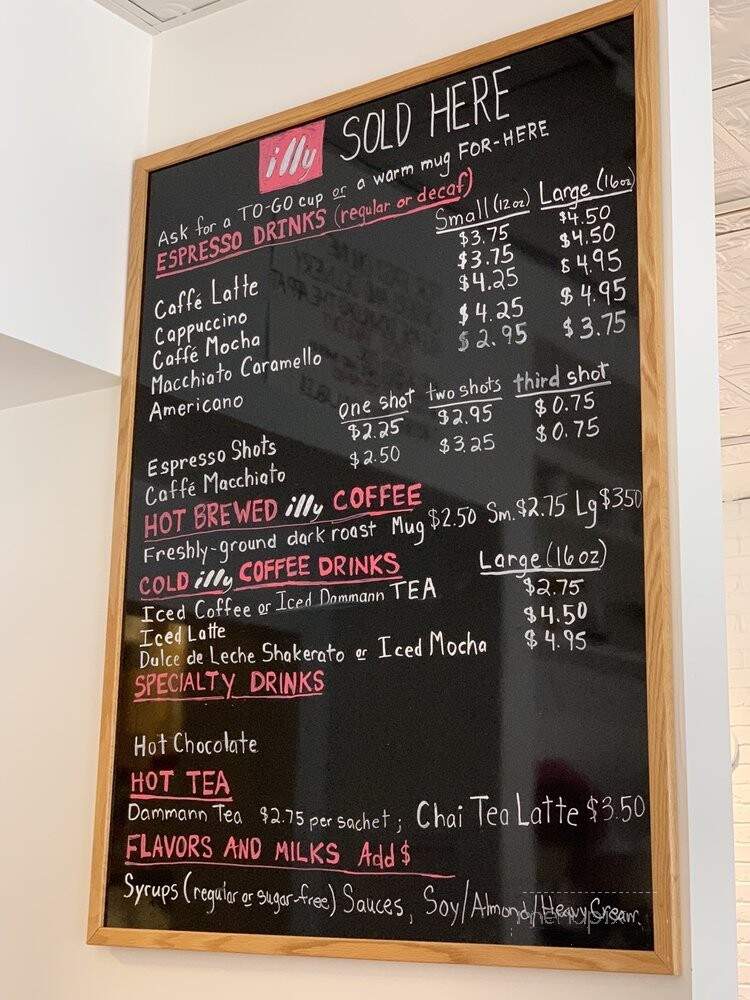 illy SOLD HERE
Ask for a TO-GO cup or a warm mug FOR-HERE
ESPRESSO DRINKS (regular or decaf)
Small (12oz) Large (16oz)
Caffé Latte $3.75 $4.50
Cappuccino $3.75 $4.50
Caffé Mocha $4.25 $4.95
Macchiato Caramello $4.25 $4.95
Americano $2.95 $3.75
One shot two shots third shot
Espresso Shots $2.25 $2.95 $0.75
Caffé Macchiato $2.50 $3.25 $0.75
HOT BREWED illy COFFEE
Freshly-ground dark roast Mug $2.50 Sm. $2.75 Lg $350
COLD illy COFFEE DRINKS Large (16oz)
Iced Coffee or Iced Dammann TEA $2.75
Iced Latte $4.50
Dulce de Leche Shakerato or Iced Mocha $4.95
SPECIALTY DRINKS
Hot Chocolate
HOT TEA
Dammann Tea $2.75 per sachet; Chai Tea Latte $3.50
FLAVORS AND MILKS Add $
Syrups (regular or sugar-free) Sauces, Soy/Almond/Heavy Cream.
menupix